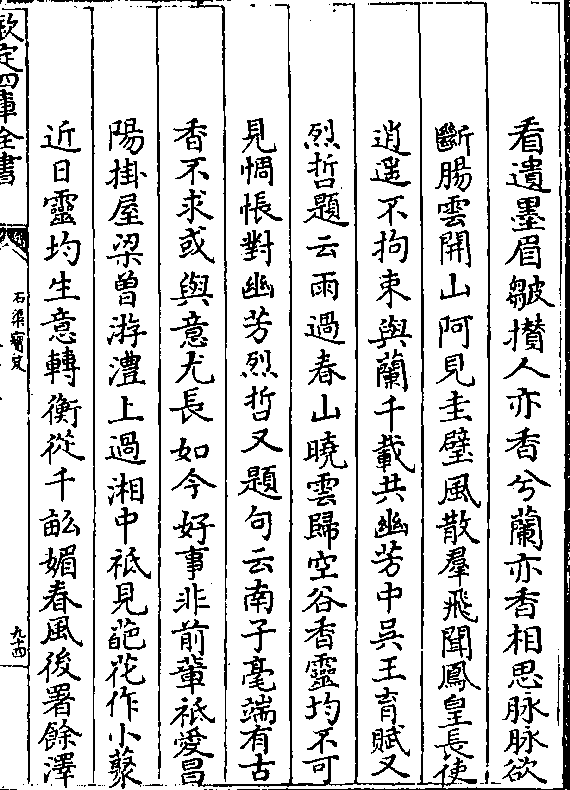 看遺墨眉皺攢人亦香兮蘭亦香相思脉脉欲
斷腸雲開山阿見圭璧風散羣飛聞鳳皇長使
逍遥不拘束與蘭千載共幽芳中吳王育賦又
烈哲題云雨過春山曉雲歸空谷香靈均不可
見惆悵對幽芳烈哲又題句云南子毫端有古
香不求或與意尤長如今好事非前輩祇愛昌
陽掛屋梁曾游澧上過湘中祇見葩花作小藂
近日靈均生意轉蘅從千畝媚春風後署餘澤
欽定四庫全書
石渠寶笈
九十四